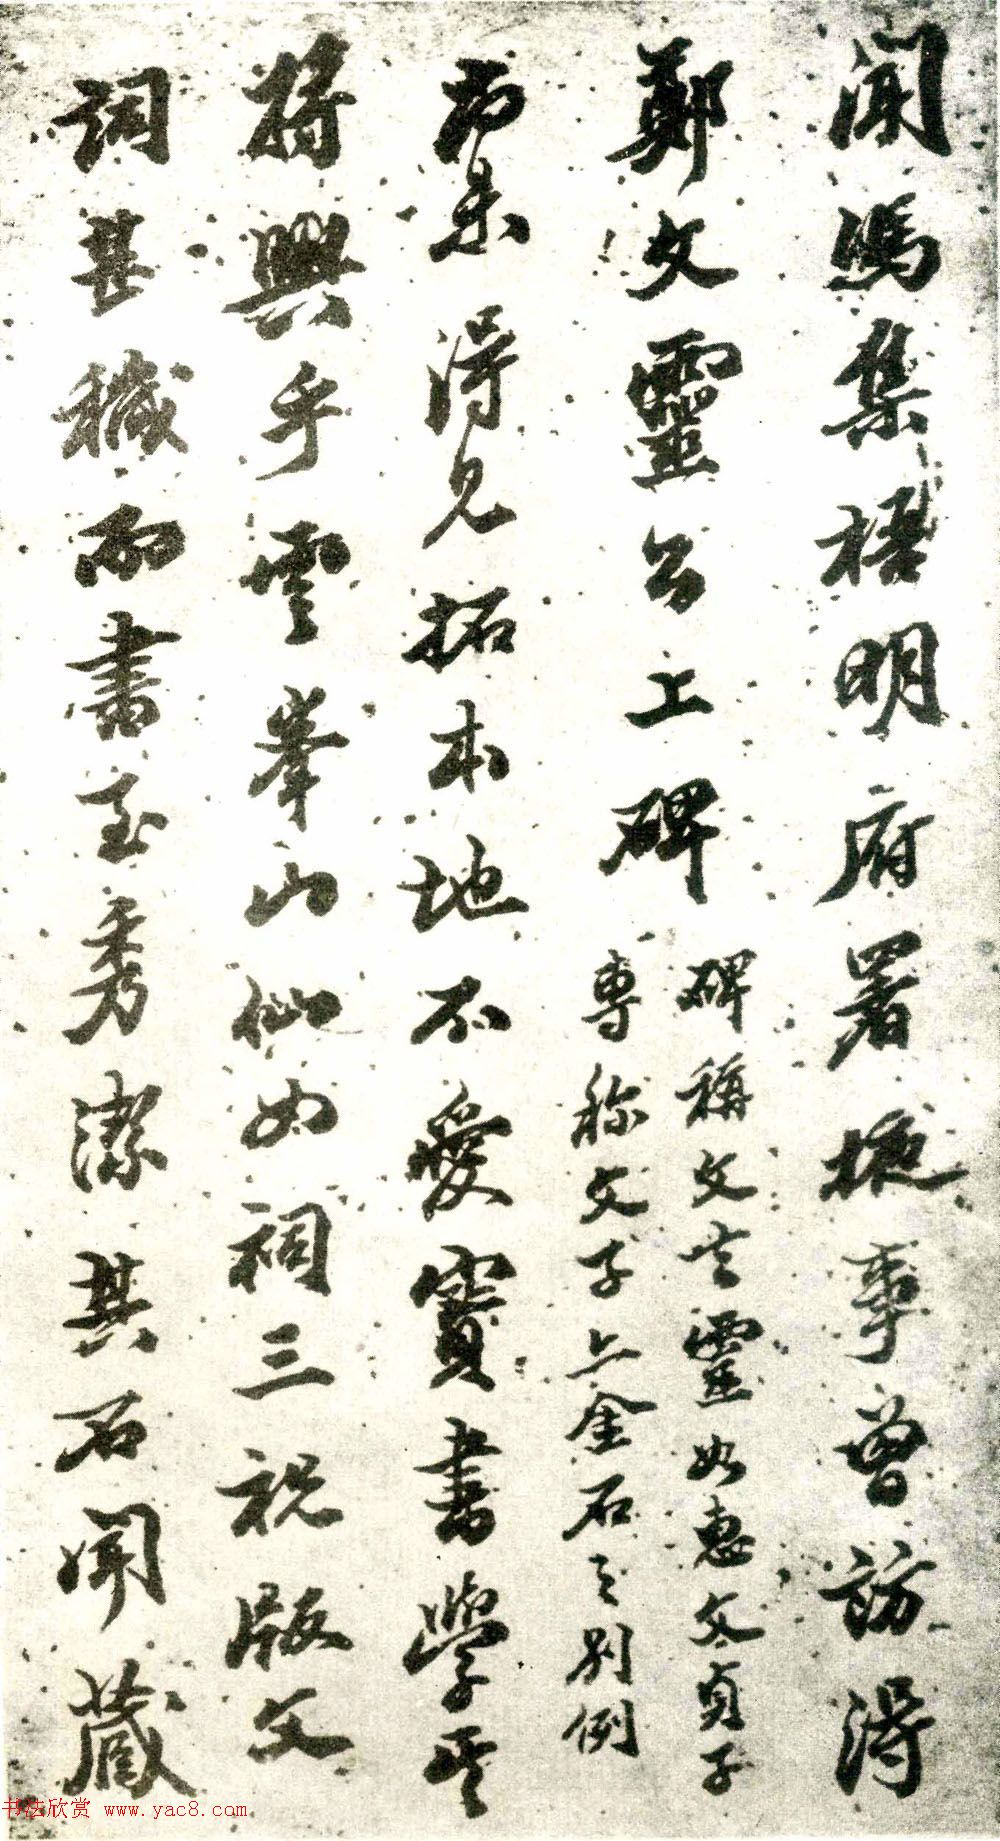 聞馮集梧明府署掖事曾訪得
鄭文靈公上碑
碑稱文共靈如惠文貞子
專称文子上金石之別例
而未得見拓本地不愛寶書學其
將興乎雲峯山仙如祠三祝版文
詞甚穢而書至秀潔其石聞藏
书法欣赏 www.yac8.com